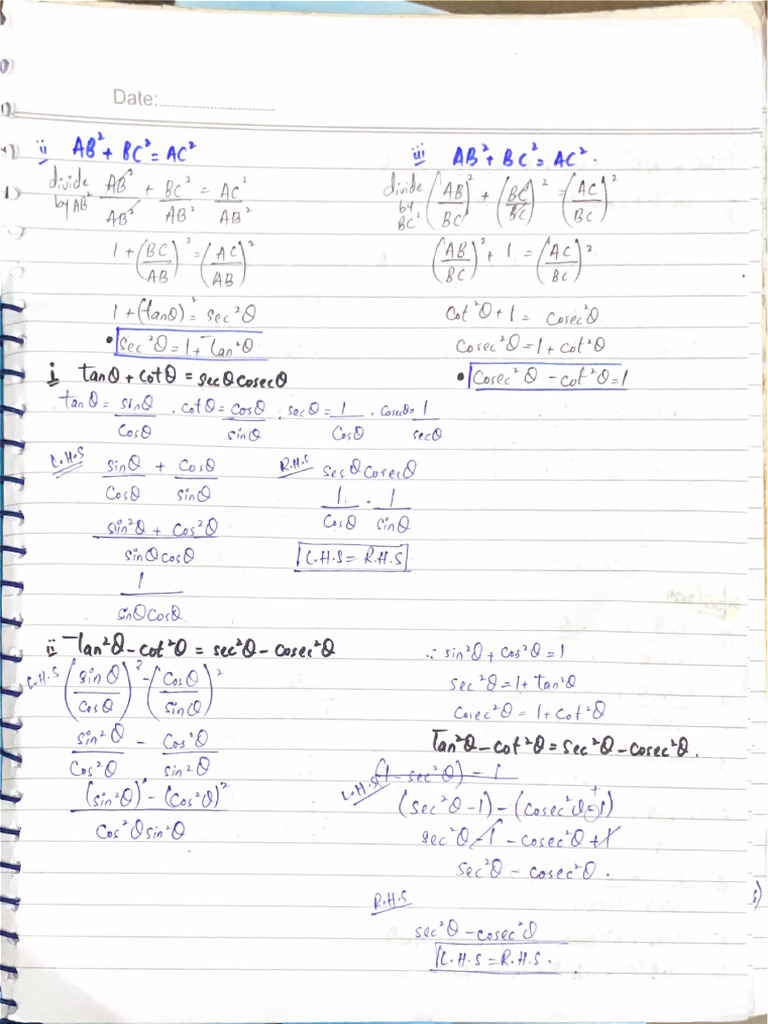 Date:
ii AB² + BC² = AC²
divide by AB² AB²/AB² + BC²/AB² = AC²/AB²
1 + (BC/AB)² = (AC/AB)²
1 + (tanθ)² = sec²θ
• sec²θ = 1 + Tan²θ
iii AB² + BC² = AC².
divide by BC² (AB/BC)² + (BC/BC)² = (AC/BC)²
(AB/BC)² + 1 = (AC/BC)²
Cot²θ + 1 = cosec²θ
Cosec²θ = 1 + cot²θ
• Cosec²θ - cot²θ = 1
i tanθ + cotθ = secθ cosecθ
tanθ = sinθ/Cosθ . cotθ = cosθ/sinθ . secθ = 1/Cosθ . cosecθ = 1/secθ
L.H.S sinθ/Cosθ + Cosθ/sinθ
sin²θ + Cos²θ/sinθ cosθ
1/sinθ Cosθ
R.H.S secθ cosecθ
1/Cosθ . 1/sinθ
L.H.S = R.H.S
ii Tan²θ - cot²θ = sec²θ - cosec²θ
L.H.S (sinθ/cosθ)² - (Cosθ/sinθ)²
sin²θ/Cos²θ - Cos²θ/sin²θ
(sin²θ)² - (cos²θ)²/Cos²θ sin²θ
∴ sin²θ + cos²θ = 1
sec²θ = 1 + tan²θ
Cosec²θ = 1 + cot²θ
Tan²θ - cot²θ = sec²θ - cosec²θ.
(1 - sec²θ) = 1
L.H.S (sec²θ - 1) - (cosec²θ - 1)
sec²θ - 1 - cosec²θ + 1
sec²θ - cosec²θ.
R.H.S
sec²θ - cosec²θ
L.H.S = R.H.S.